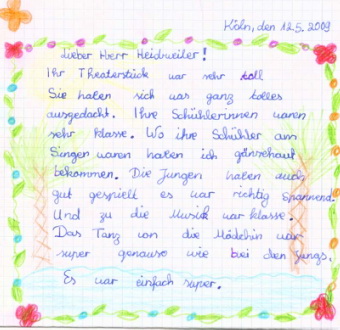 Köln, den 12.5.2009
Lieber Herr Heidweiler!
Ihr Theaterstück war sehr toll
Sie haben sich was ganz tolles
ausgedacht. Ihre Schühlerinnen waren
sehr klasse. Wo ihre Schühler am
Singen waren haben ich gänsehaut
bekommen. Die Jungen haben auch
gut gespielt es war richtig spannend.
Und zu die Musik war klasse.
Das Tanz von die Mädchin war
super genauso wie bei den Jungs.
Es war einfach super.